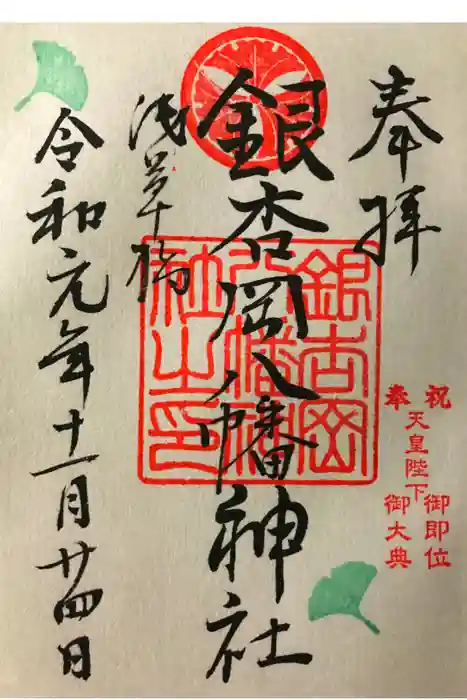 奉拝
祝 天皇陛下 御即位
奉 御大典
銀杏岡八幡神社
浅草橋
令和元年十一月廿四日
銀杏岡
八幡神
社之印